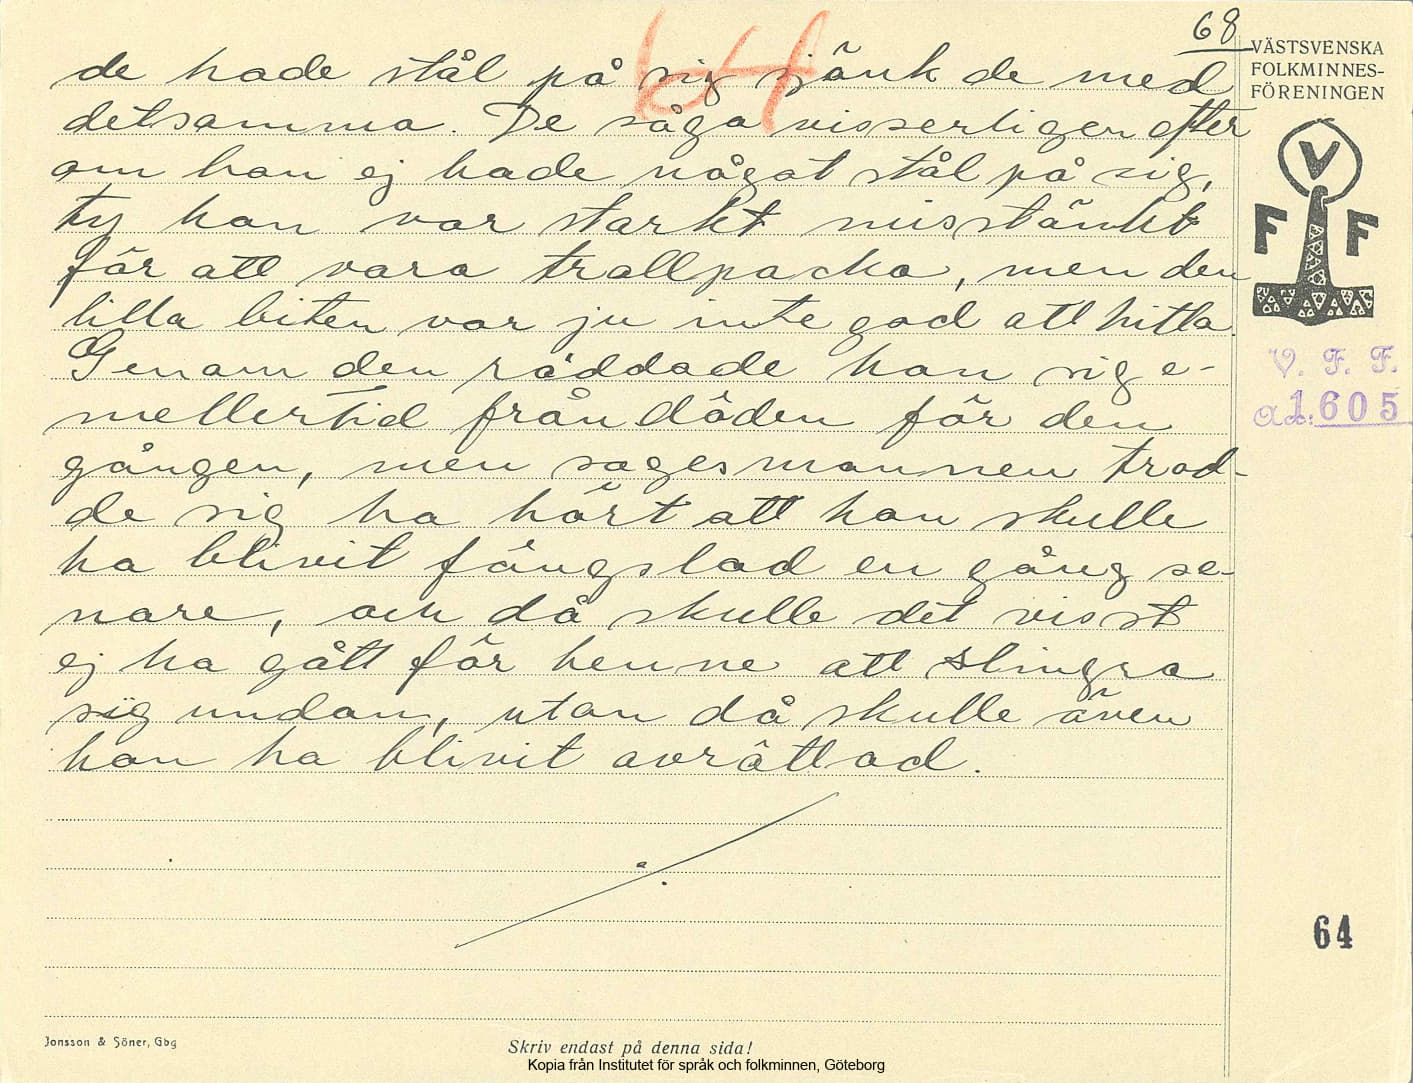 68
64
VÄSTSVENSKA
FOLKMINNES-
FÖRENINGEN
V
F F
V. F. F.
ad. 1.605
de hade stål på sig sjänk de med
detsamma. De såga visserligen efter
om han ej hade något stål på sig,
ty han var starkt misstänkt
för att vara trallpacka, men den
lilla biten var ju inte god att hitta.
Genom den räddade han sig e-
mellertid från döden för den
gången, men sagesmannen trod-
de sig ha hört att han skulle
ha blivit fängslad en gång se-
nare, och då skulle det visst
ej ha gått för henne att slingra
sig undan, utan då skulle även
han ha blivit avrättad.
64
Jonsson & Söner, Gbg
Skriv endast på denna sida!
Kopia från Institutet för språk och folkminnen, Göteborg